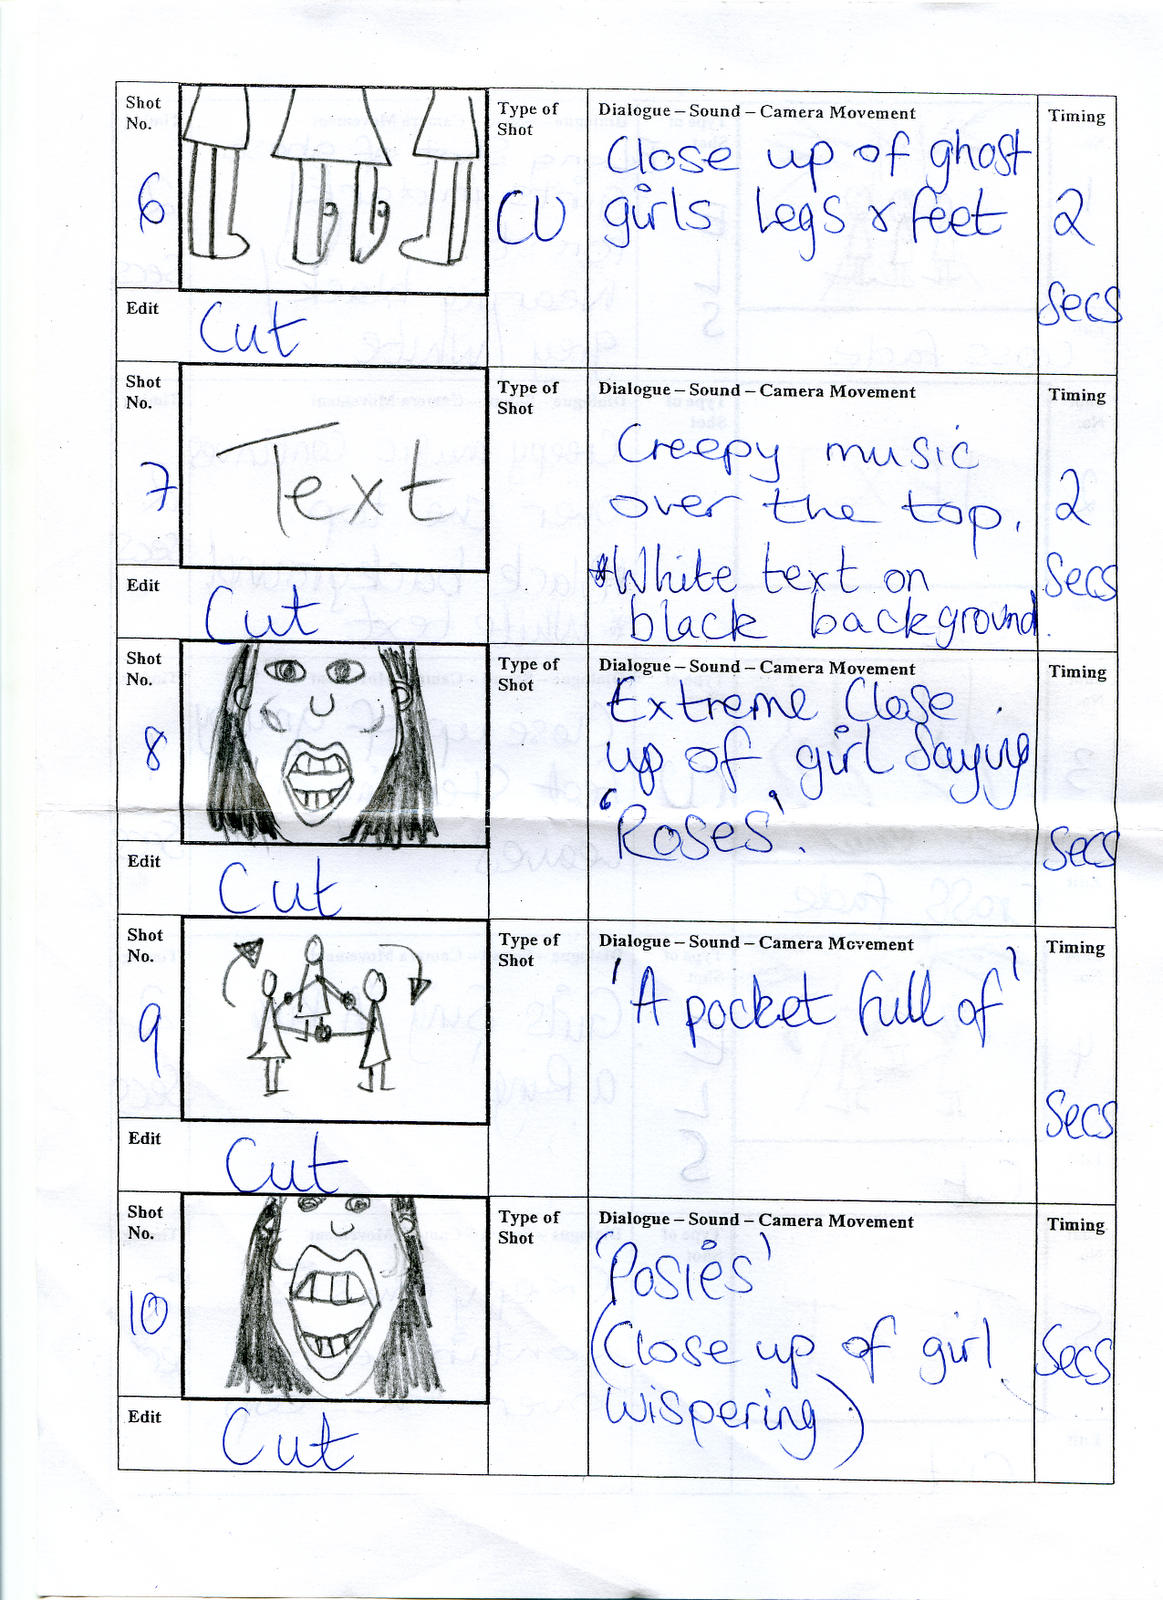 Shot
No.
6
Type of
Shot
CU
Dialogue – Sound – Camera Movement
Close up of ghost
girls legs & feet
Timing
2
secs
Edit
Cut
Shot
No.
7
Text
Type of
Shot
Dialogue – Sound – Camera Movement
Creepy music
over the top.
*White text on
black background.
Timing
2
Secs
Edit
Cut
Shot
No.
8
Type of
Shot
Dialogue – Sound – Camera Movement
Extreme Close
up of girl saying
'Roses'.
Timing
Secs
Edit
Cut
Shot
No.
9
Type of
Shot
Dialogue – Sound – Camera Movement
'A pocket full of'
Timing
Secs
Edit
Cut
Shot
No.
10
Type of
Shot
Dialogue – Sound – Camera Movement
'Posies'
(Close up of girl
wispering)
Timing
Secs
Edit
Cut